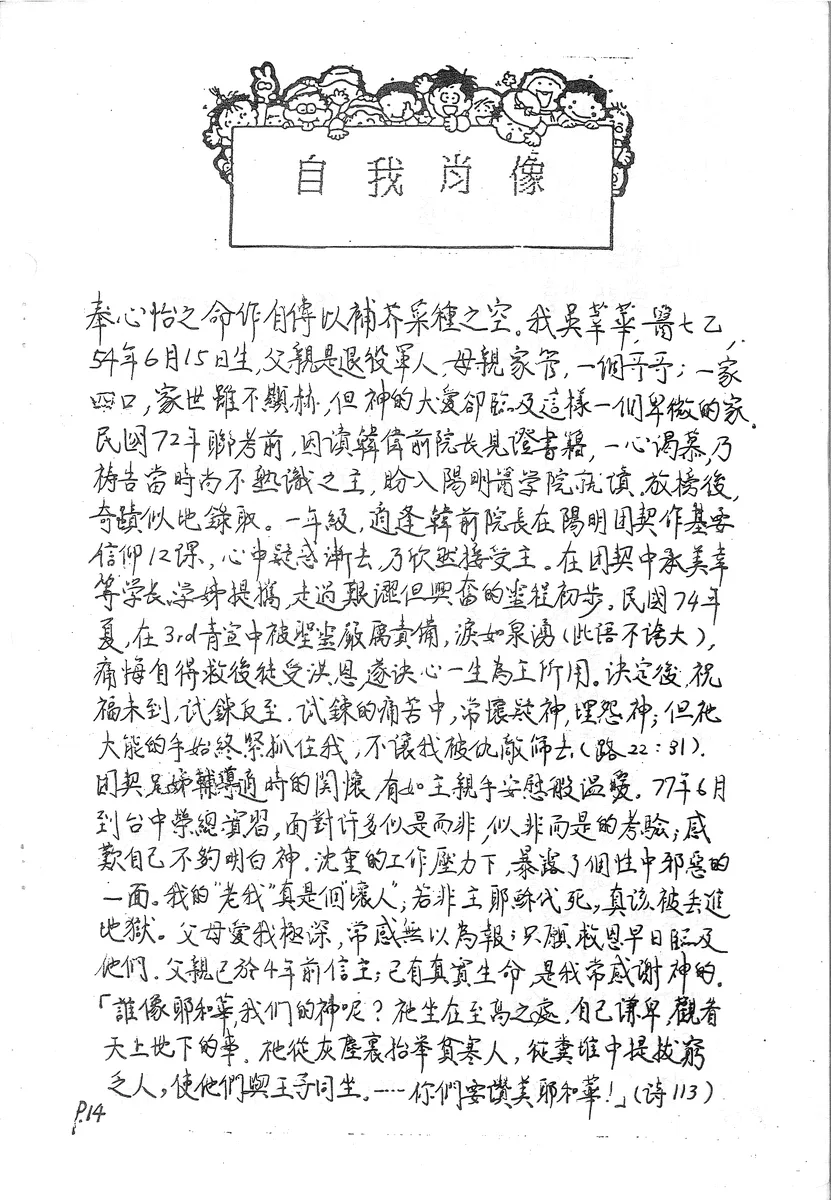 自我肖像
奉心怡之命作自傳以補芥菜種之空。我吳莘華,醫七乙,
54年6月15日生,父親是退役軍人,母親家管,一個哥哥;一家
四口,家世雖不顯赫,但神的大愛卻臨及這樣一個卑微的家.
民國72年聯考前,因讀韓偉前院長見證書籍,一心渴慕,乃
禱告當時尚不熟識之主,盼入陽明醫学院就讀.放榜後,
奇蹟似地錄取。一年級,適逢韓前院長在陽明团契作基要
信仰12課,心中疑惑漸去,乃欣然接受主。在团契中承美幸
等学長、学姊提攜,走過艱澀但興奮的灵程初步。民國74年
夏,在3rd青宣中被聖灵嚴厲責備,淚如泉湧(此语不誇大),
痛悔自得救後徒受洪恩,遂決心一生為主所用。決定後,祝
福未到,试鍊反至.试鍊的痛苦中,常懷疑神,埋怨神;但祂
大能的手始終緊抓住我,不讓我被仇敵篩去(路22:31).
团契兄姊輔導適時的関懷,有如主親手安慰般温暖。77年6月
到台中榮總實習,面對许多似是而非,似非而是的考驗;感
歎自己不夠明白神.沈重的工作壓力下,暴露了個性中邪惡的
一面。我的"老我"真是個"壞人";若非主耶穌代死,真該被丢進
地獄。父母愛我極深,常感無以為報;只願救恩早日臨及
他們.父親已於4年前信主;已有真實生命,是我常感謝神的.
「誰像耶和華,我们的神呢?祂坐在至高之處,自己謙卑,觀看
天上地下的事.祂從灰塵裏抬举貧寒人,從糞堆中提拔窮
乏人,使他們與王子同坐。……你們要讚美耶和華!」(诗113)
P.14